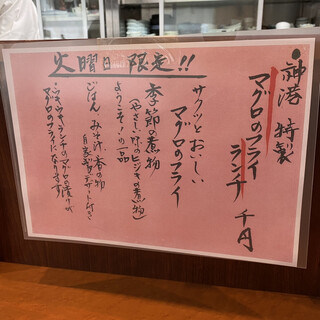 火曜日限定!!
●神港 特製
マグロのフライ
ランチ 千円
サクッとおいしい
マグロのフライ
季節の煮物
(やさしい味のヒジキの煮物)
ようこそ!の一品
ごはん、みそ汁、香の物
自家製デザート付き
マグロのフライになります